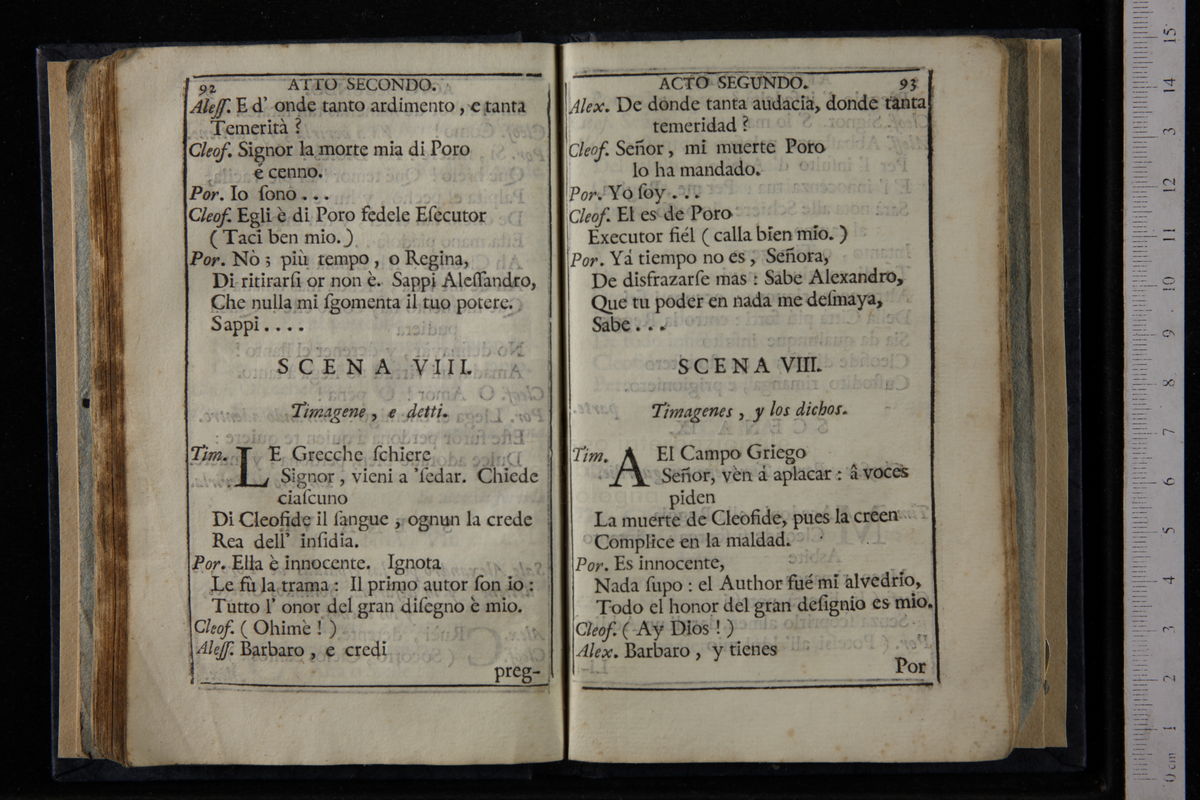 92 ATTO SECONDO.
Aleſſ. E d' onde tanto ardimento, e tanta
Temerità ?
Cleof. Signor la morte mia di Poro
é cenno.
Por. Io ſono . . .
Cleof. Egli è di Poro fedele Eſecutor
( Taci ben mio. )
Por. Nò ; più tempo , o Regina,
Di ritirarſi or non è. Sappi Aleſſandro,
Che nulla mi ſgomenta il tuo potere.
Sappi . . . .
SCENA VIII.
Timagene , e detti.
Tim. LE Grecche ſchiere
Signor , vieni a 'ſedar. Chiede
ciaſcuno
Di Cleofide il ſangue , ognun la crede
Rea dell' inſidia.
Por. Ella è innocente. Ignota
Le fù la trama : Il primo autor ſon io :
Tutto l' onor del gran diſegno è mio.
Cleof. ( Ohimè ! )
Aleſſ. Barbaro , e credi
preg-
ACTO SEGUNDO. 93
Alex. De donde tanta audacia, donde tanta
temeridad ?
Cleof. Señor , mi muerte Poro
lo ha mandado.
Por. Yo ſoy . . .
Cleof. El es de Poro
Executor fiél ( calla bien mio. )
Por. Yá tiempo no es , Señora,
De disfrazarſe mas : Sabe Alexandro,
Que tu poder en nada me deſmaya,
Sabe . . .
SCENA VIII.
Timagenes , y los dichos.
Tim. AEl Campo Griego
Señor, vèn á aplacar : â voces
piden
La muerte de Cleofide, pues la creen
Complice en la maldad.
Por. Es innocente,
Nada ſupo : el Author fué mi alvedrio,
Todo el honor del gran deſignio es mio.
Cleof. ( Ay Dios ! )
Alex. Barbaro , y tienes
Por
0 cm 1 2 3 4 5 6 7 8 9 10 11 12 13 14 15